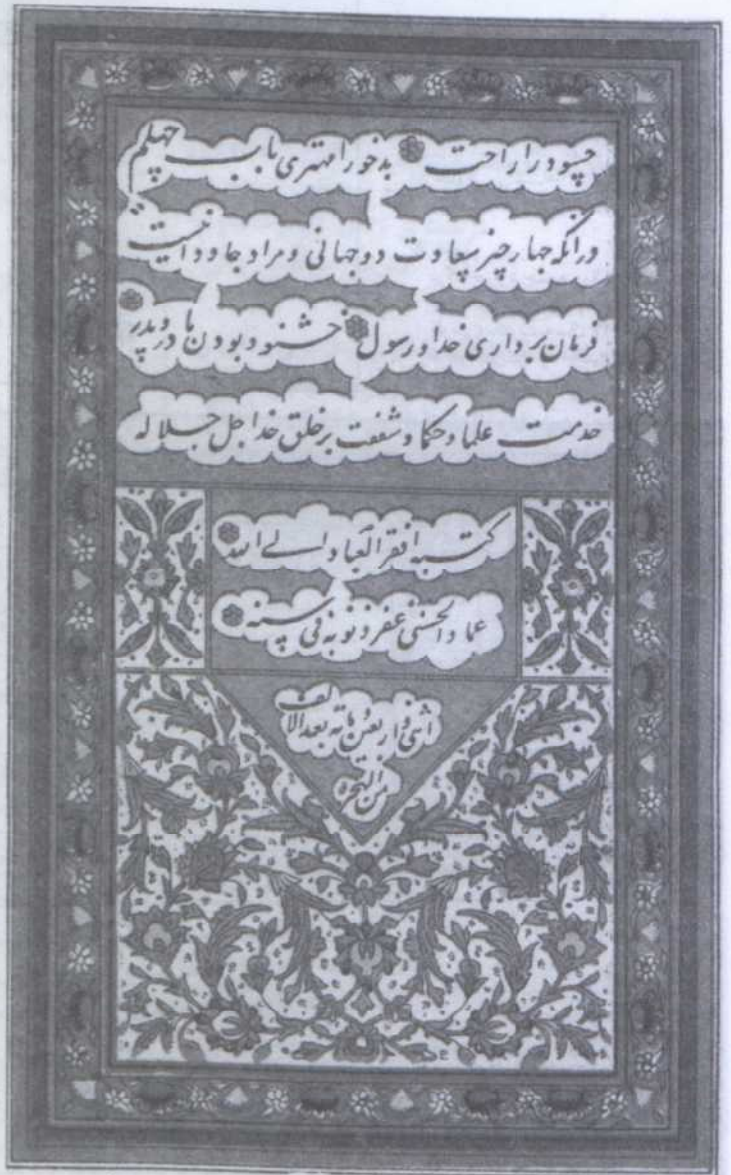 حسود را راحت بدخو را مهتری باب چهلم
در آنکه چهار چیز سعادت دو جهانی و مراد جاودانیست
فرمان برداری خدا و رسول خشنود بودن مادر و پدر
خدمت علما و حکما و شفقت بر خلق خدا جل جلاله
کتبه افقر العباد الی الله
عماد الحسنی غفر ذنوبه فی سنه
اثنی و اربعین و مائه بعد الالف
من الهجره